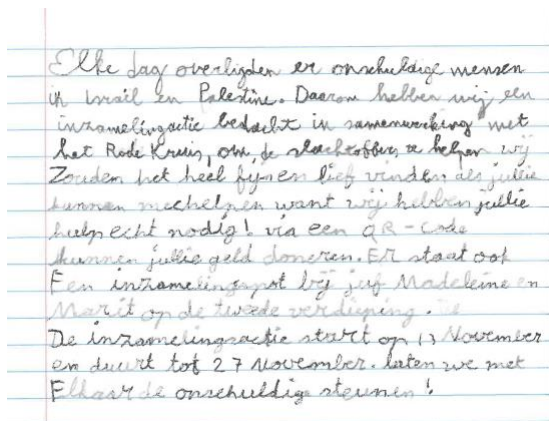 Elke dag overlijden er onschuldige mensen
in israël en Palestine. Daarom hebben wij een
inzamelingactie bedacht in samenwerking met
het Rode Kruis, om de slachtoffers te helpen wij
Zouden het heel fijn en lief vinden als jullie
kunnen meehelpen want wij hebben jullie
hulp echt nodig! via een QR-code
kunnen jullie geld doneren. Er staat ook
Een inzamelingspot bij juf Madeleine en
Marit op de tweede verdieping.
De inzamelingsactie start op 13 November
en duurt tot 27 November. laten we met
Elkaar de onschuldig steunen!